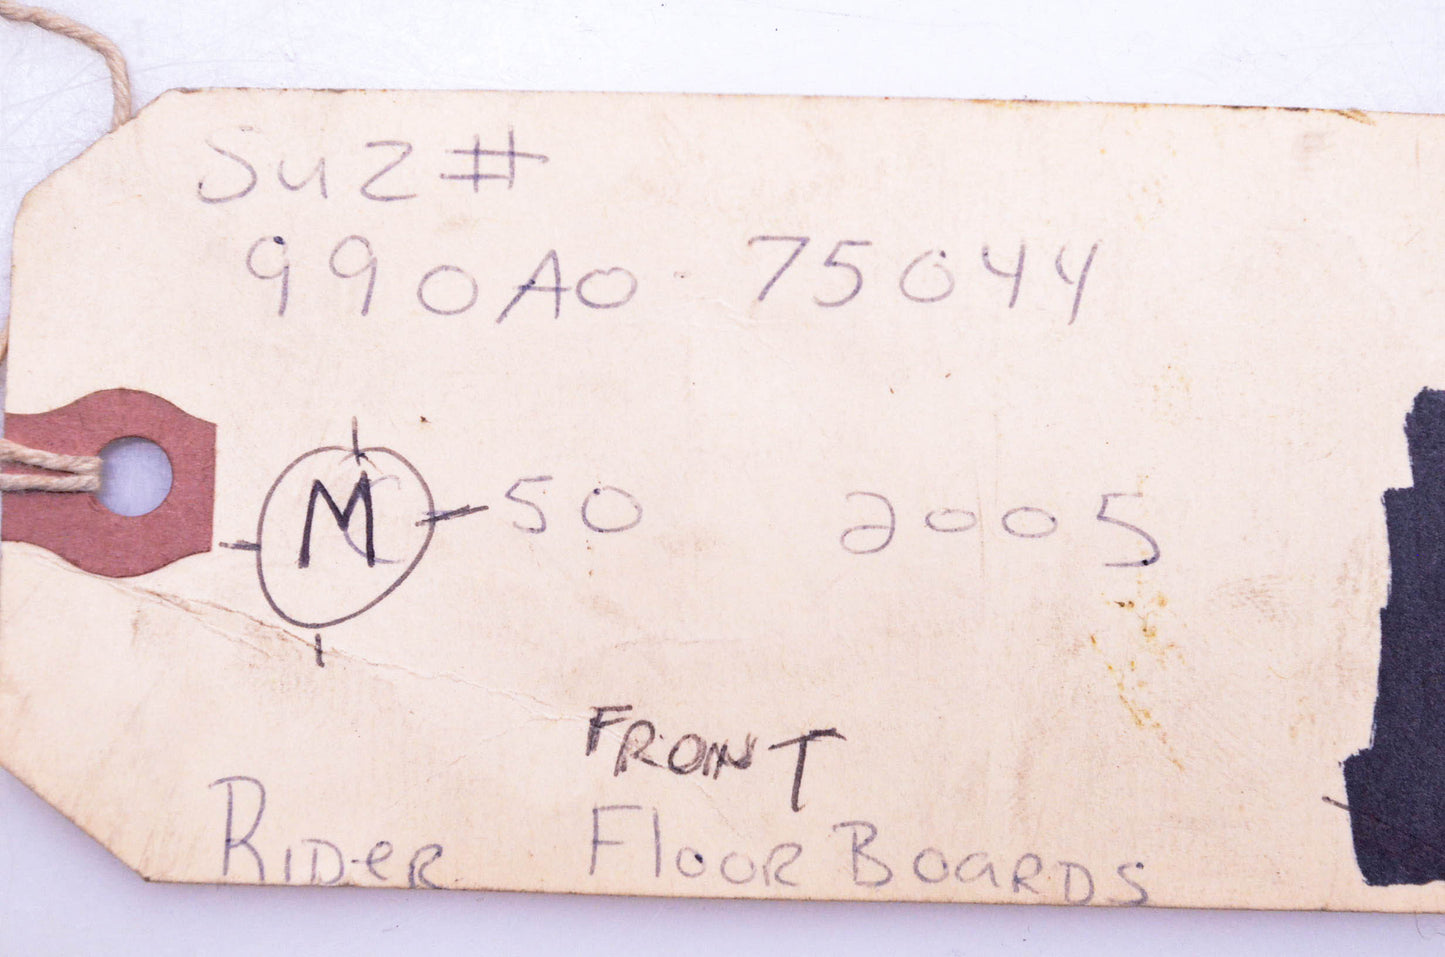 Suz #
990A0-75044
M50 2005
FRONT
RIDER FlooR BoaRDS